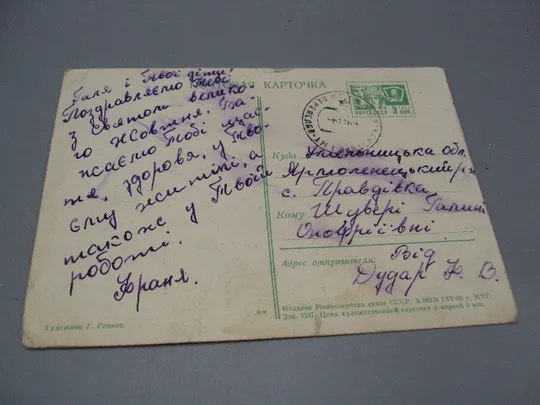 Галя і Твої діти!
Поздравляємо Тебе
з Святом велико-
го Жовтня. Ба-
жаємо Тобі щас-
тя, здоровя, у Тво-
єму житті, а
також у Твоїй
роботі.
Франя.
Художник Г. Ренков.
ПОЧТОВАЯ КАРТОЧКА
ПОЧТА СССР
3 коп
Куда Хмельницька обл.
Ярмолинецький р-н
с. Правдівка
Кому Шувері Галині
Онофріївні.
Адрес отправителя: Від
Дудар Ф. В.
Издание Министерства связи СССР.
Зак. Цена художественной карточки с маркой 4 коп.